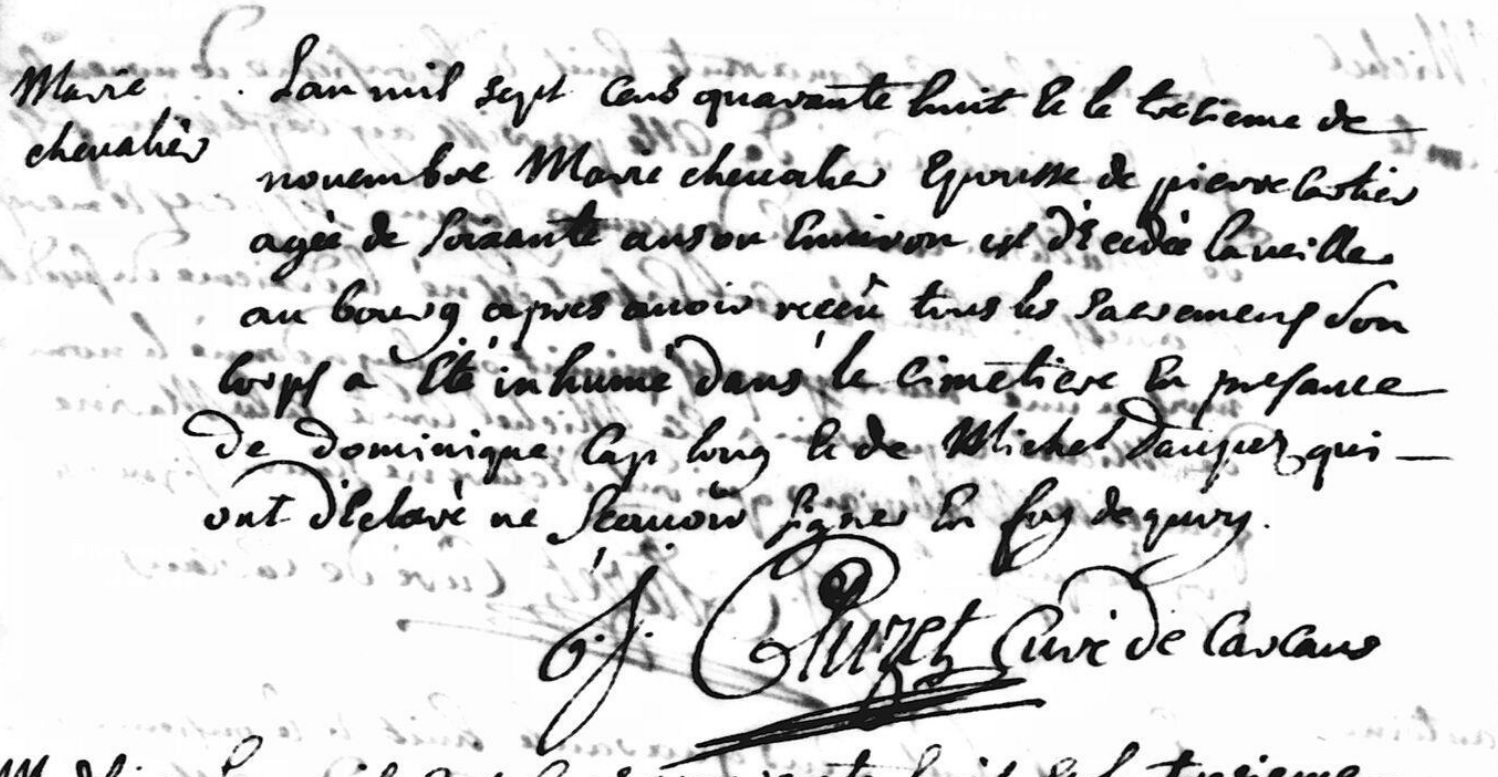 Marie
chevalier
Lan mil sept cens quarante huit Et le tresieme de
novembre Marie chevalier Epousse de pierre Cartier
agée de soixante ans ou Environ est décedée la veille
au bourg apres avoir recëu tous les sacremens son
Corps a été inhumé dans le Cimetiere En presance
de dominique Cap long Et de Michel qui
ont déclaré ne scavoir signer En foy de quoy.
Curé de Carcans